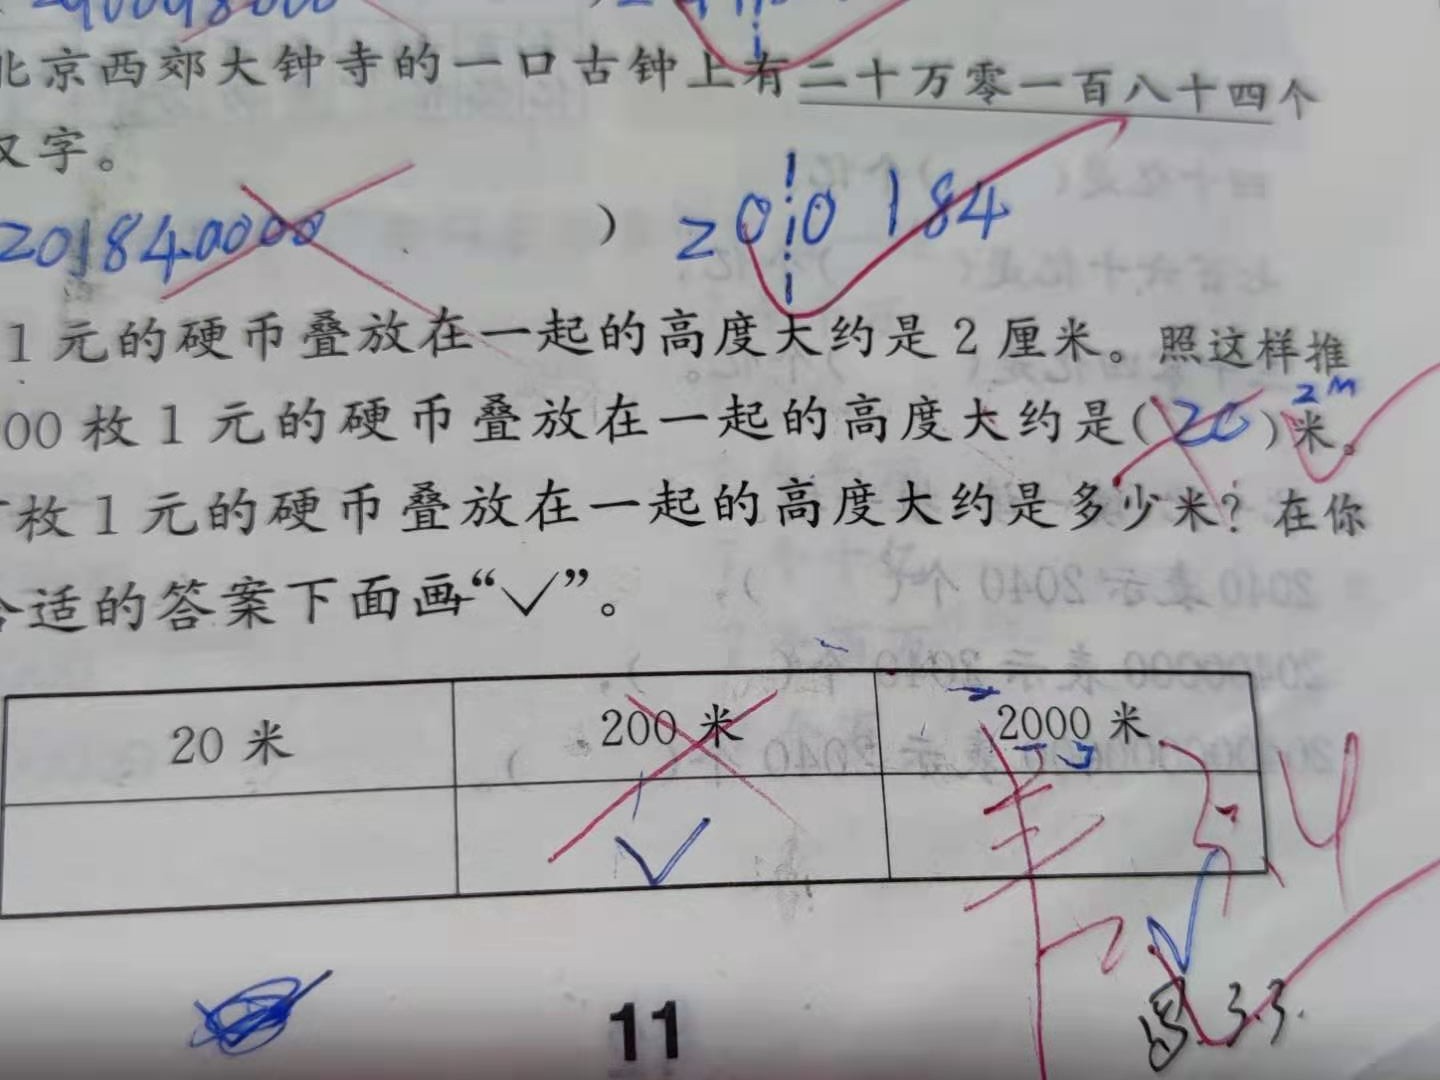 北京西郊大钟寺的一口古钟上有二十万零一百八十四个
汉字。
201840000 ) 200184
1元的硬币叠放在一起的高度大约是2厘米。照这样推
00枚1元的硬币叠放在一起的高度大约是(20)米。 2m
枚1元的硬币叠放在一起的高度大约是多少米？在你
合适的答案下面画“✓”。
20米 200米 2000米
✓
3.4
3.3.
11